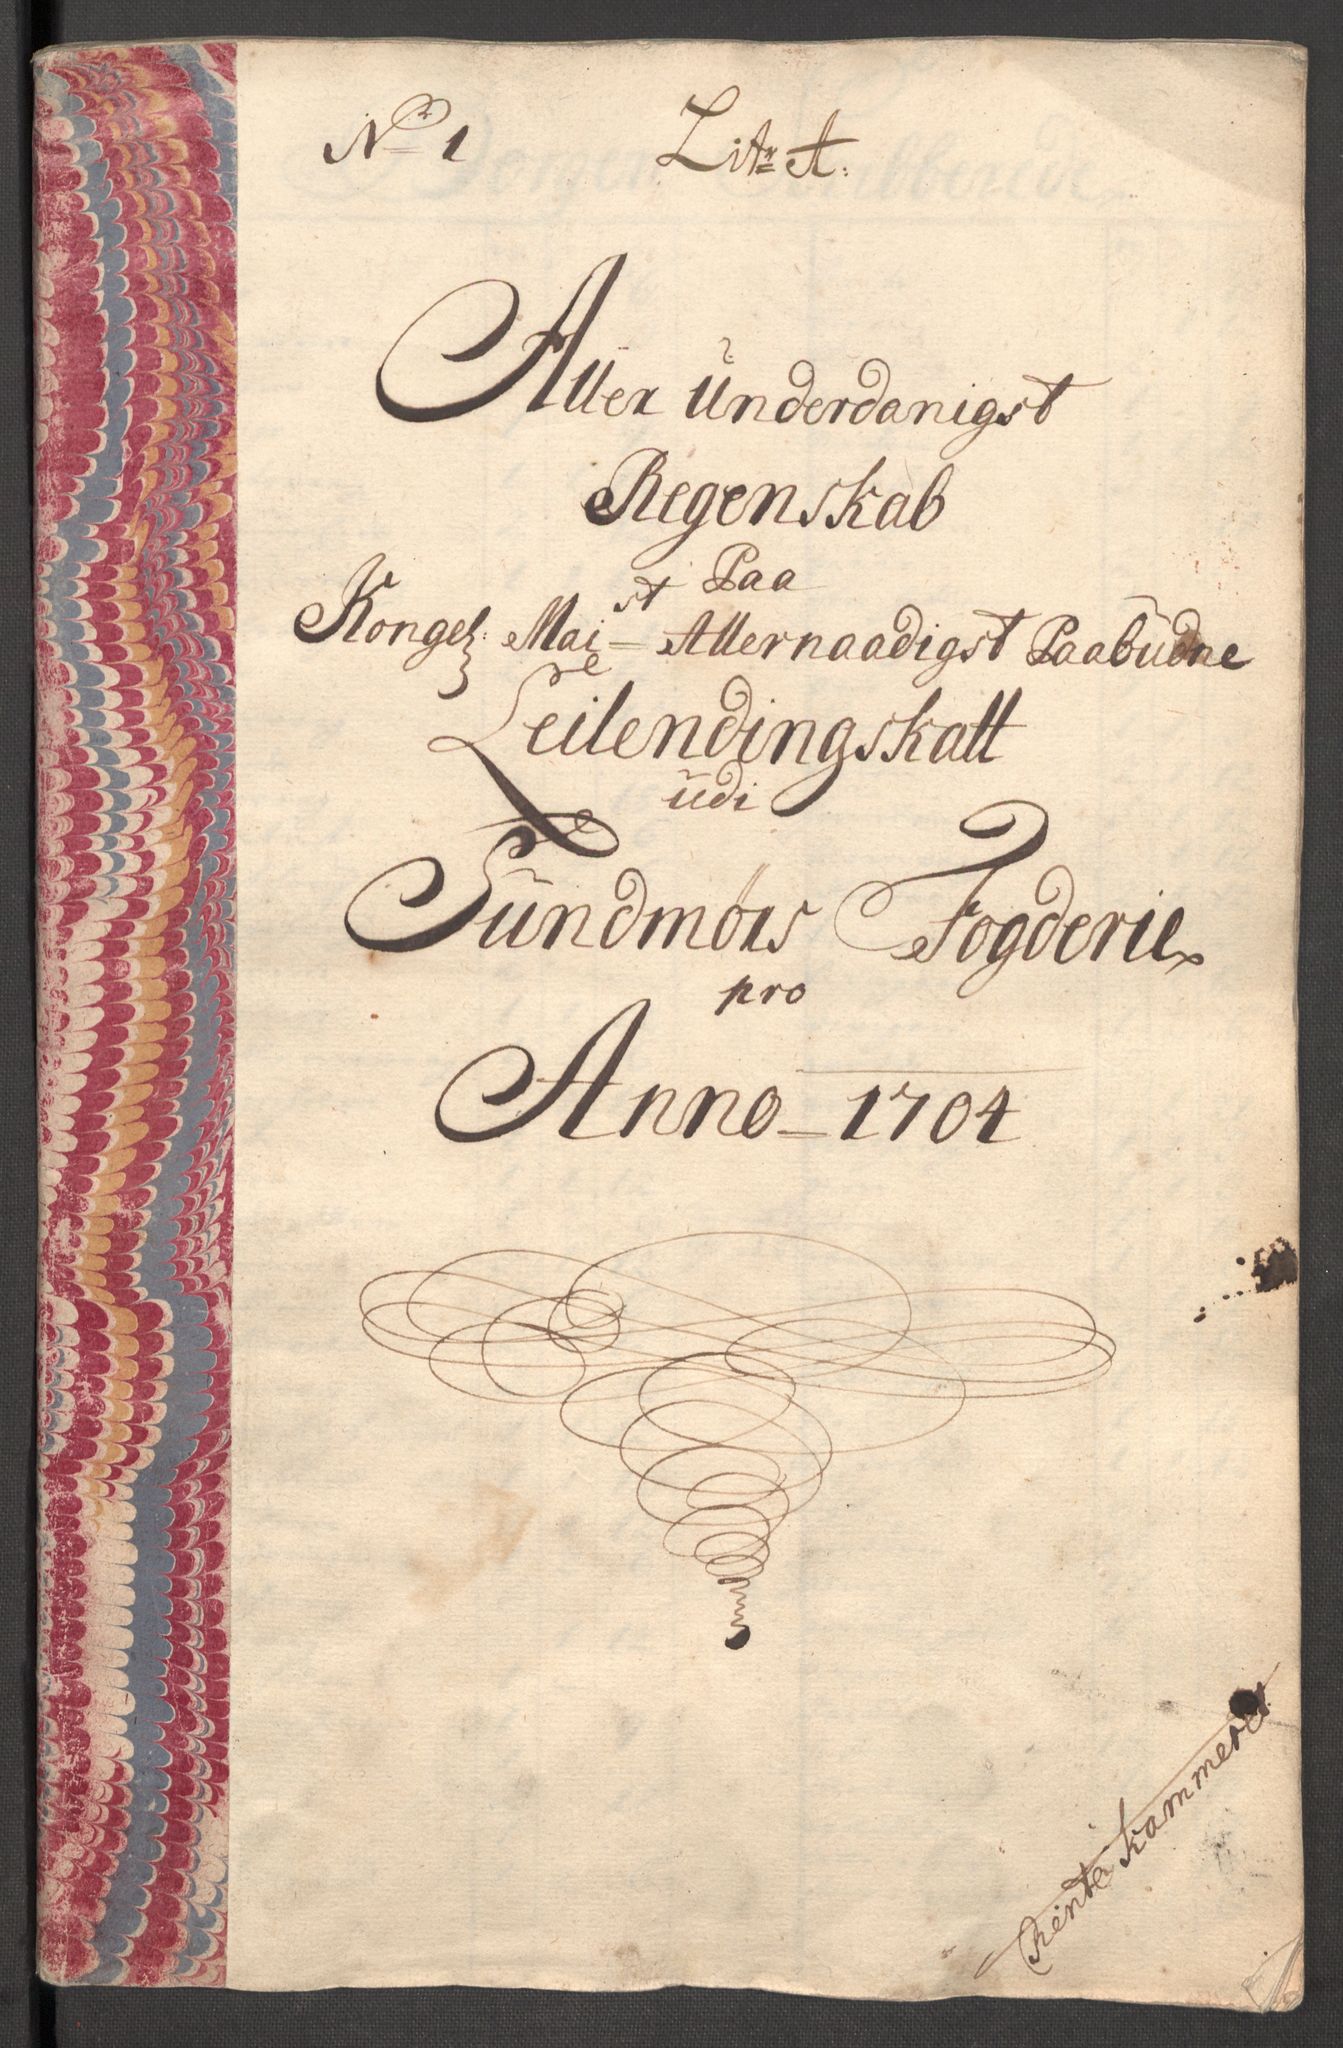 No 1 Litr A:
Aller Underdanigst
Regenskab
Paa
Kongel: Maist Allernaadigst Paabudne
Leilendingskatt
udi
Sundmørs Fogderie
pro
Anno 1704
Rente Kammeret